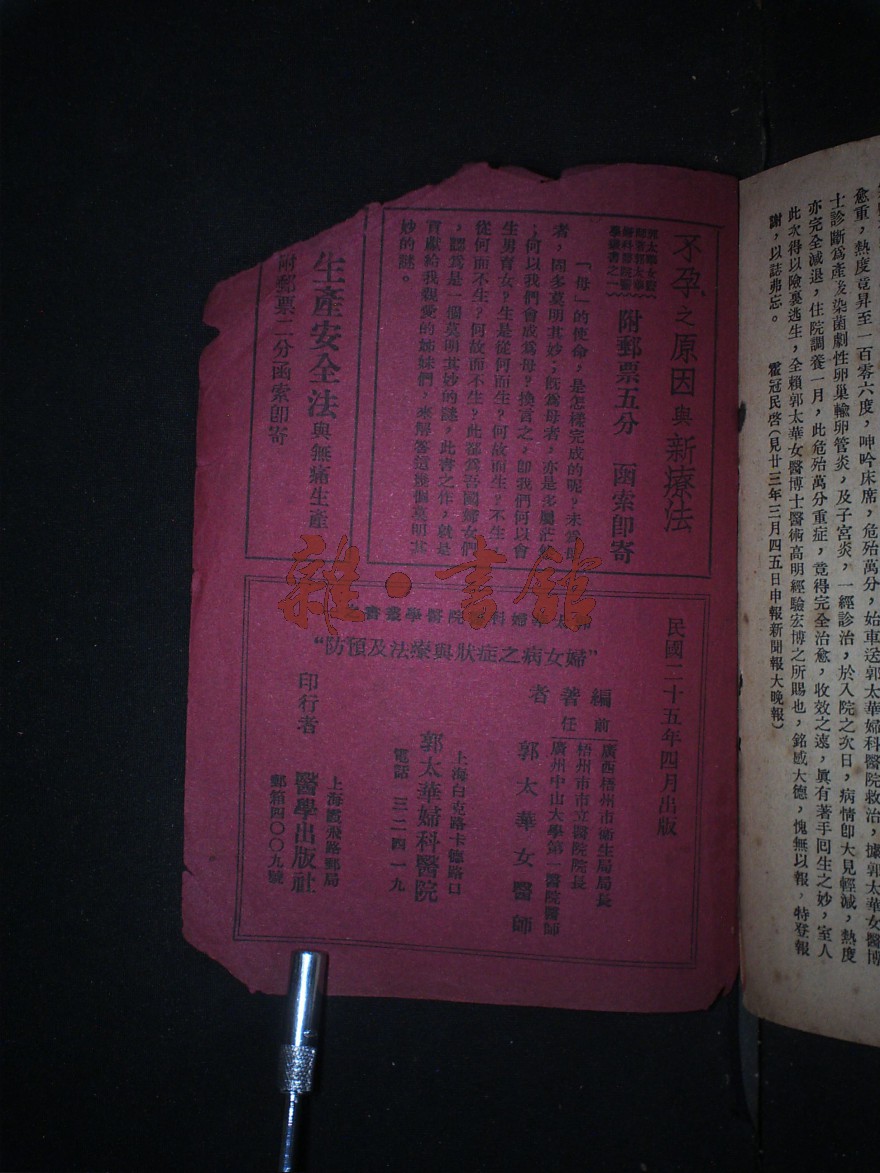 愈重，熱度竟昇至一百零六度，呻吟床席，危殆萬分，始車送郭太華婦科醫院救治，據郭太華女醫博
士診斷爲產後染菌劇性卵巢輸卵管炎，及子宮炎，一經診治，於入院之次日，病情卽大見輕減，熱度
亦完全減退，住院調養一月，此危殆萬分重症，竟得完全治愈，收效之速，眞有著手回生之妙，室人
此次得以險裏逃生，全賴郭太華女醫博士醫術高明經驗宏博之所賜也，銘感大德，愧無以報，特登報
謝，以誌弗忘。　霍冠民啓(見廿三年三月四五日申報新聞報大晚報)
不孕之原因與新療法
學叢書之一
附郵票五分　函索卽寄
「母」的使命，是怎樣完成的呢？未爲母
者，固多莫明其妙；旣爲母者，亦是多屬茫然
；何以我們會成爲母？換言之，卽我們何以會
生男育女？生是從何而生？何故而生？不生
從何而不生？何故而不生？此都爲吾國婦女們
，認爲是一個莫明其妙的謎，此書之作，就是
貢獻給我親愛的姊妹們，來解答這幾個莫明其
妙的謎。
生產安全法與無痛生產
附郵票二分函索卽寄
民國二十五年四月出版
婦科醫院醫學叢書
“婦女病之症狀與療法及預防”
編著者
前任
廣西梧州市衛生局局長
梧州市市立醫院院長
廣州中山大學第一醫院醫師
郭太華女醫師
上海白克路卡德路口
郭太華婦科醫院
電話　三二四一九
印行者
上海霞飛路郵局
醫學出版社
郵箱四〇〇九號
雜·書館